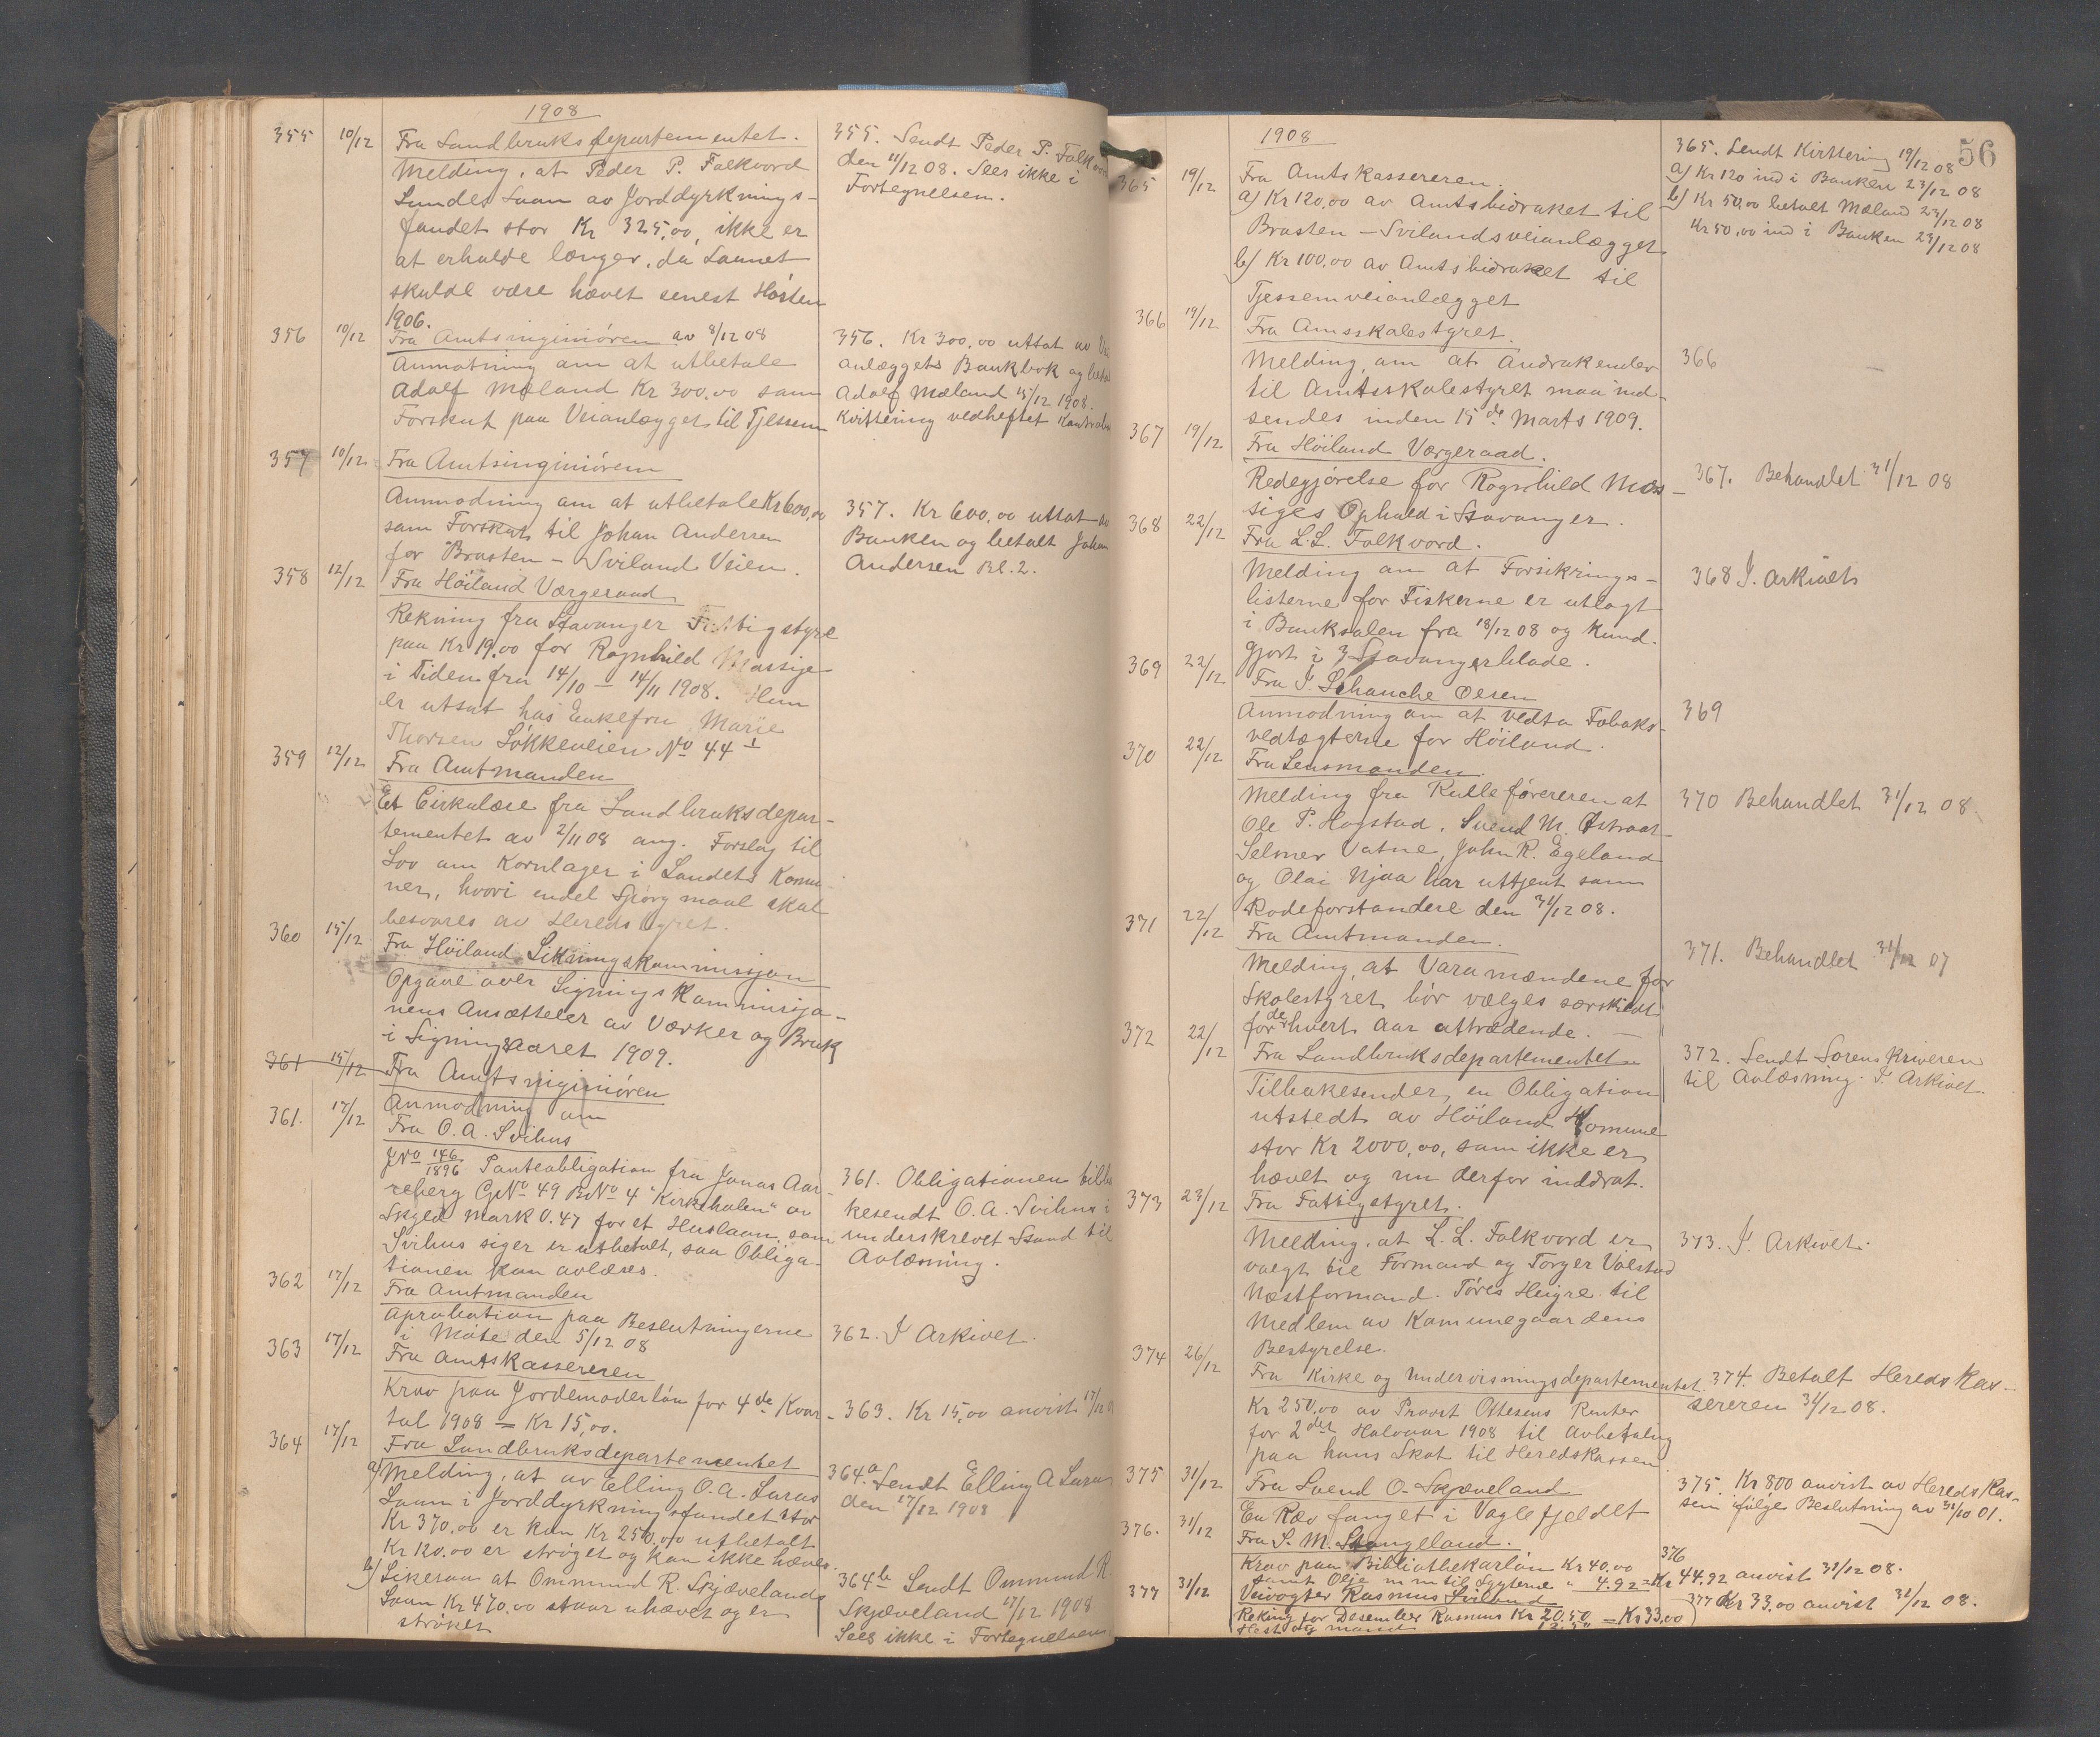 1908
355 10/12 Fra Landbruksdepartementet.
Melding, at Peder P. Folkvord
Lundes Laan av Jorddyrknings-
fondet stor Kr 325,00, ikke er
at erholde længer, da Laanet
skulde være hævet senest Høsten
1906.
355. Sendt Peder P. Folkvord
den 11/12 08. Sees ikke i
Fortegnelsen.
356 10/12 Fra Amtsingeniøren av 8/12 08
Anmotning om at utbetale
Adolf Mæland Kr 300.00 som
Forskut paa Veianlægget til Tjessem
356. Kr 300.00 uttat av Vei
anlæggets Bankbok og betalt
Adolf Mæland 15/12 1908.
Kvittering vedheftet
357 10/12 Fra Amtsinginiøren
Anmodning om at utbetale Kr 600,00
som Forskut til Johan Andersen
for Brasten - Sviland Veien.
357. Kr 600.00 uttat av
Banken og betalt Johan
Andersen Bl. 2.
358 12/12 Fra Høiland Værgeraad
Rekning fra Stavanger Fattigstyre
paa Kr 19.00 for Ragnhild Massige
i Tiden fra 14/10 - 14/11 1908. Hun
er utsat hos Enkefru Marie
Thorsen Løkkeveien No 44 I
359 12/12 Fra Amtmanden
Et Cirkulære fra Landbruksdepar-
tementet av 2/11 08 ang. Forslag til
Lov om Kornlager i Landets Komu-
ner, hvori endel Spørgmaal skal
besvares av Heredstyret.
360 15/12 Fra Høiland Likningskommissjon
Opgave over Ligningskommissjo-
nens Ansættelser av Værker og Bruk
i Ligningsaaret 1909.
361 15/12 Fra Amtsinginiøren
Anmodning om
361. 17/12 Fra O. A. Svihus
JNo 146/1896 Panteobligation fra Jonas Aar-
reberg GNo 49 BNo 4 "Kirkeholen" av
Skyld Mark 0.47 for et Huslaan, som
Svihus siger er utbetalt, saa Obliga-
tionen kan avlæses.
361. Obligationen tilba
kesendt O. A. Svihus i
underskrevet Stand til
Avlæsning.
362 17/12 Fra Amtmanden
Aprobation paa Beslutningerne
i Møte den 5/12 08
362. I Arkivet.
363 17/12 Fra Amtskassereren
Krav paa Jordemoderløn for 4de Kvar-
tal 1908 = Kr 15,00.
363. Kr 15,00 anvist 17/12
364 17/12 Fra Landbruksdepartementet
a) Melding, at av Elling O. A. Luras
Laan i Jorddyrkningsfondet stor
Kr 370.00 er kun Kr 250.00 utbetalt
Kr 120.00 er strøget og kan ikke hæves.
b) Likesaa at Ommund R. Skjævelands
Laan Kr 470.00 staar uhævet og er
strøket
364.a Sendt Elling A Luras
den 17/12 1908
364b Sendt Ommund R.
Skjæveland 17/12 1908
Sees ikke i Fortegnelsen
56
1908
365 19/12 Fra Amtskassereren.
a) Kr 120,00 av Amtsbidraket til
Brasten - Svilandsveianlægget
b) Kr 100,00 av Amtsbidraket til
Tjessemveianlægget
365. Sendt Kvittering 19/12 08
a) Kr 120 ind i Banken 23/12 08
b) Kr 50,00 betalt Mæland 23/12 08
Kr 50,00 ind i Banken 23/12 08
366 19/12 Fra Amsskolestyret.
Melding om at Andrakender
til Amtsskolestyret maa ind-
sendes inden 15de Marts 1909.
366
367 19/12 Fra Høiland Værgeraad.
Redegjørelse for Ragnhild Mas-
siges Ophold i Stavanger.
367. Behandlet 31/12 08
368 22/12 Fra L. L. Folkvord.
Melding om at Forsikrings-
listerne for Fiskerne er utlagt
i Banksalen fra 18/12 08 og kund-
gjort i 3 Stavangerblade.
368 I. Arkivets
369 22/12 Fra I. Schanche Olsen
Anmodning om at vedta Tobaks-
vedtægterne for Høiland.
369
370 22/12 Fra Lensmanden.
Melding fra Rulleførereren at
Ole P. Hogstad, Svend M. Østraat
Selmer Vatne, John R. Egeland
og Olai Njaa har uttjent som
Rodeforstandere den 31/12 08.
370 Behandlet 31/12 08.
371 22/12 Fra Amtmanden.
Melding, at Varamændene for
Skolestyret bør vælges særskildt
for de hvert Aar uttrædende.
371. Behandlet 31/12 07
372 22/12 Fra Landbruksdepartementet
Tilbakesender en Obligation
utstedt av Høiland Komune
stor Kr 2000,00, som ikke er
hævet og nu derfor inddrat.
372. Sendt Sorenskriveren
til Avlæsning. I. Arkivet.
373 23/12 Fra Fattigstyret.
Melding, at L. L. Folkvord er
valgt til Formand og Torger Valstad
Næstformand. Tøres Heigre til
Medlem av Komunegaardens
Bestyrelse.
373. I. Arkivet.
374 26/12 Fra Kirke og Undervisningsdepartementet.
Kr 250,00 av Provst Ottesens Renter
for 2det Halvaar 1908 til Avbetaling
paa hans Skat til Heredskassen
374. Betalt Heredskas-
sereren 31/12 08.
375 31/12 Fra Svend O. Skjæveland
En Ræv fanget i Vaglefjeldet
375. Kr 800 anvist av Heredskas-
sen ifølge Beslutning av 31/10 01.
376. 31/12 Fra S. M. Stangeland.
Krav paa Bibliothekarløn Kr 40,00
samt Olje m m til Lygterne " 4.92 =
376 Kr 44.92 anvist 31/12 08.
377 31/12 Veivogter Rasmus Sviland
Rekning for Desember Rasmus Kr 20.50 = Kr 33,00
Hest og mand 12.50
377 Kr 33,00 anvist 31/12 08.